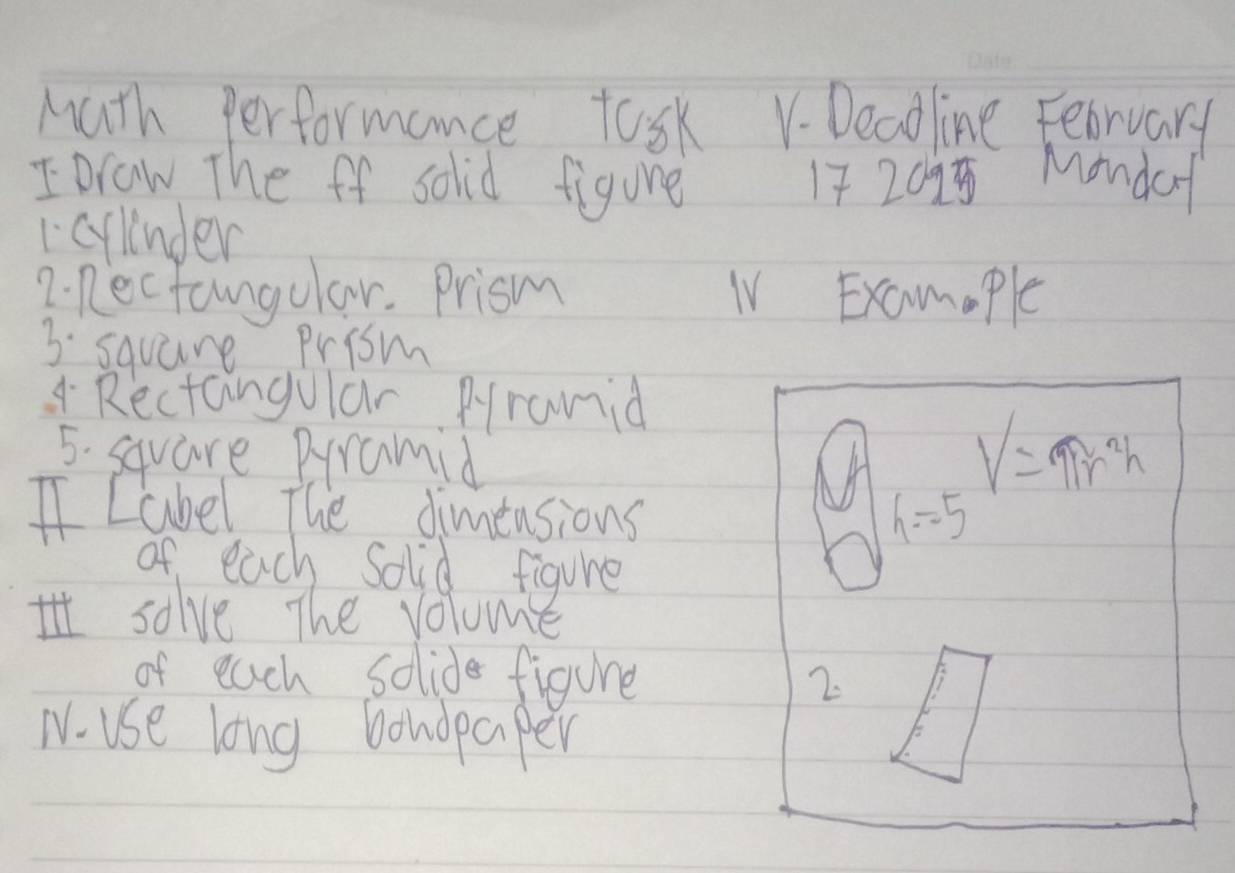 Date
Math Performance task
I. Draw The ff solid figure
1. cylinder
2. Rectangular. Prism
3. square Prism
4. Rectangular Pyramid
5. square Pyramid
II Label The dimensions
of each solid figure
III solve The Volume
of each solid figure
IV. Use long bondpaper
V. Deadline February
17 2025 Monday
IV Exam.Ple
V=πr²h
h=5
2.